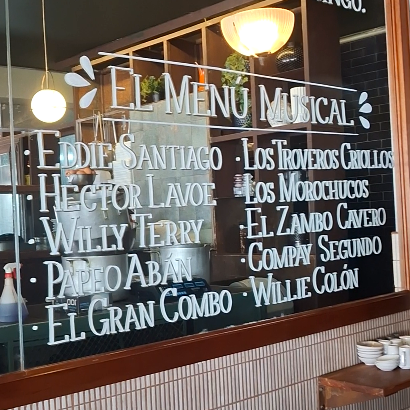 NGO.
EL MENU MUSICAL
· EDDIE SANTIAGO
· HECTOR LAVOE
· WILLY TERRY
· PAPEO ABÁN
· EL GRAN COMBO
· LOS TROVEROS CRIOLLOS
· LOS MOROCHUCOS
· EL ZAMBO CAVERO
· COMPAY SEGUNDO
· WILLIE COLÓN